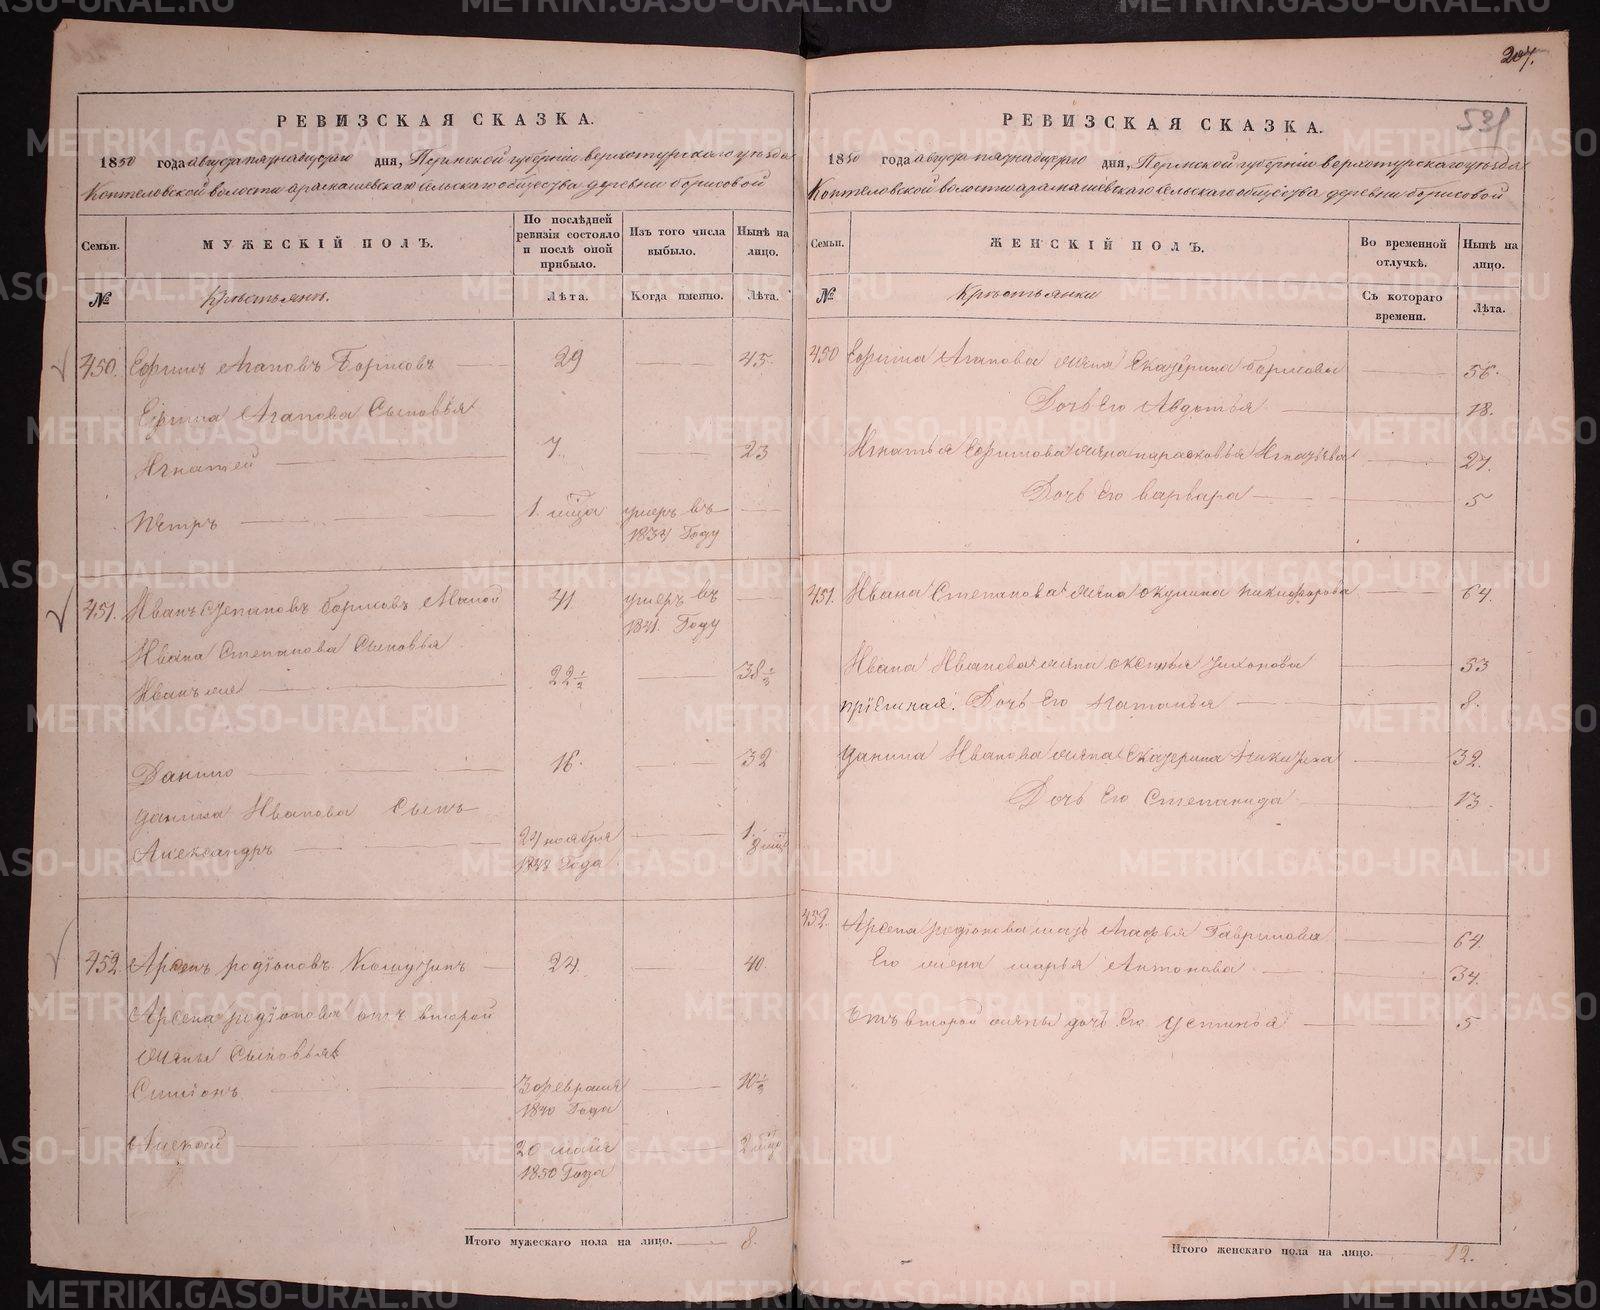 207.
531
РЕВИЗСКАЯ СКАЗКА.
1850 года августа пятнадцатаго дня, Пермской губерніи верхотурскаго уѣзда
Коптеловской волости арамашевскаго сельскаго общества деревни борисовой
Семьи. МУЖЕСКІЙ ПОЛЪ. По послѣдней ревизіи состояло и послѣ оной прибыло. Изъ того числа выбыло. Нынѣ на лицо.
№ Крестьянъ. Лѣта. Когда именно. Лѣта.
450. Ефимъ Агаповъ Борисовъ 29 45.
Ефима Агапова Сыновья
Игнатей 7. 23
Петръ 1. мѣца умеръ въ
1834 Году
451. Иванъ Степановъ борисовъ Малой 41 умеръ въ
1841. Году
Ивана Степанова Сыновья
Иванъ 22 1/2 38 1/2
Данило 16. 32
Данила Иванова Сынъ
Александръ 24 ноября 1.
1848 Года 9 мѣц
452. Арсенъ родіоновъ 24 40.
Арсена родіонова отъ второй
жены Сыновья
Симіонъ 3 февраля 10 1/2
1840 Года
Алексѣй 20 маія 2 мѣца
1850 Года
Итого мужескаго пола на лицо. 8.
РЕВИЗСКАЯ СКАЗКА.
1850 года августа пятнадцатаго дня, Пермской губерніи верхотурскаго уѣзда
Коптеловской волости арамашевскаго сельскаго общества деревни борисовой
Семьи. ЖЕНСКІЙ ПОЛЪ. Во временной отлучкѣ. Нынѣ на лицо.
№ Крестьянки Съ котораго времени. Лѣта.
450 Ефима Агапова жена Екатерина борисова 56.
Дочь Его Авдотья 18.
Игнатья Ефимова жена парасковья Игнатьева 27.
Дочь Его варвара 5
451. Ивана Степанова жена окулина никифорова 64.
Ивана Иванова жена оксинья тихонова 53
пріемная. Дочь Его Наталья 8.
Данила Иванова жена Екатерина 32.
Дочь Его Степанида 13.
452. Арсена родіонова мать Агафья Гаврилова 64.
Его жена марья Антонова 34.
Отъ второй жены дочь Его устинья 5
Итого женскаго пола на лицо. 12.
METRIKI.GASO-URAL.RU